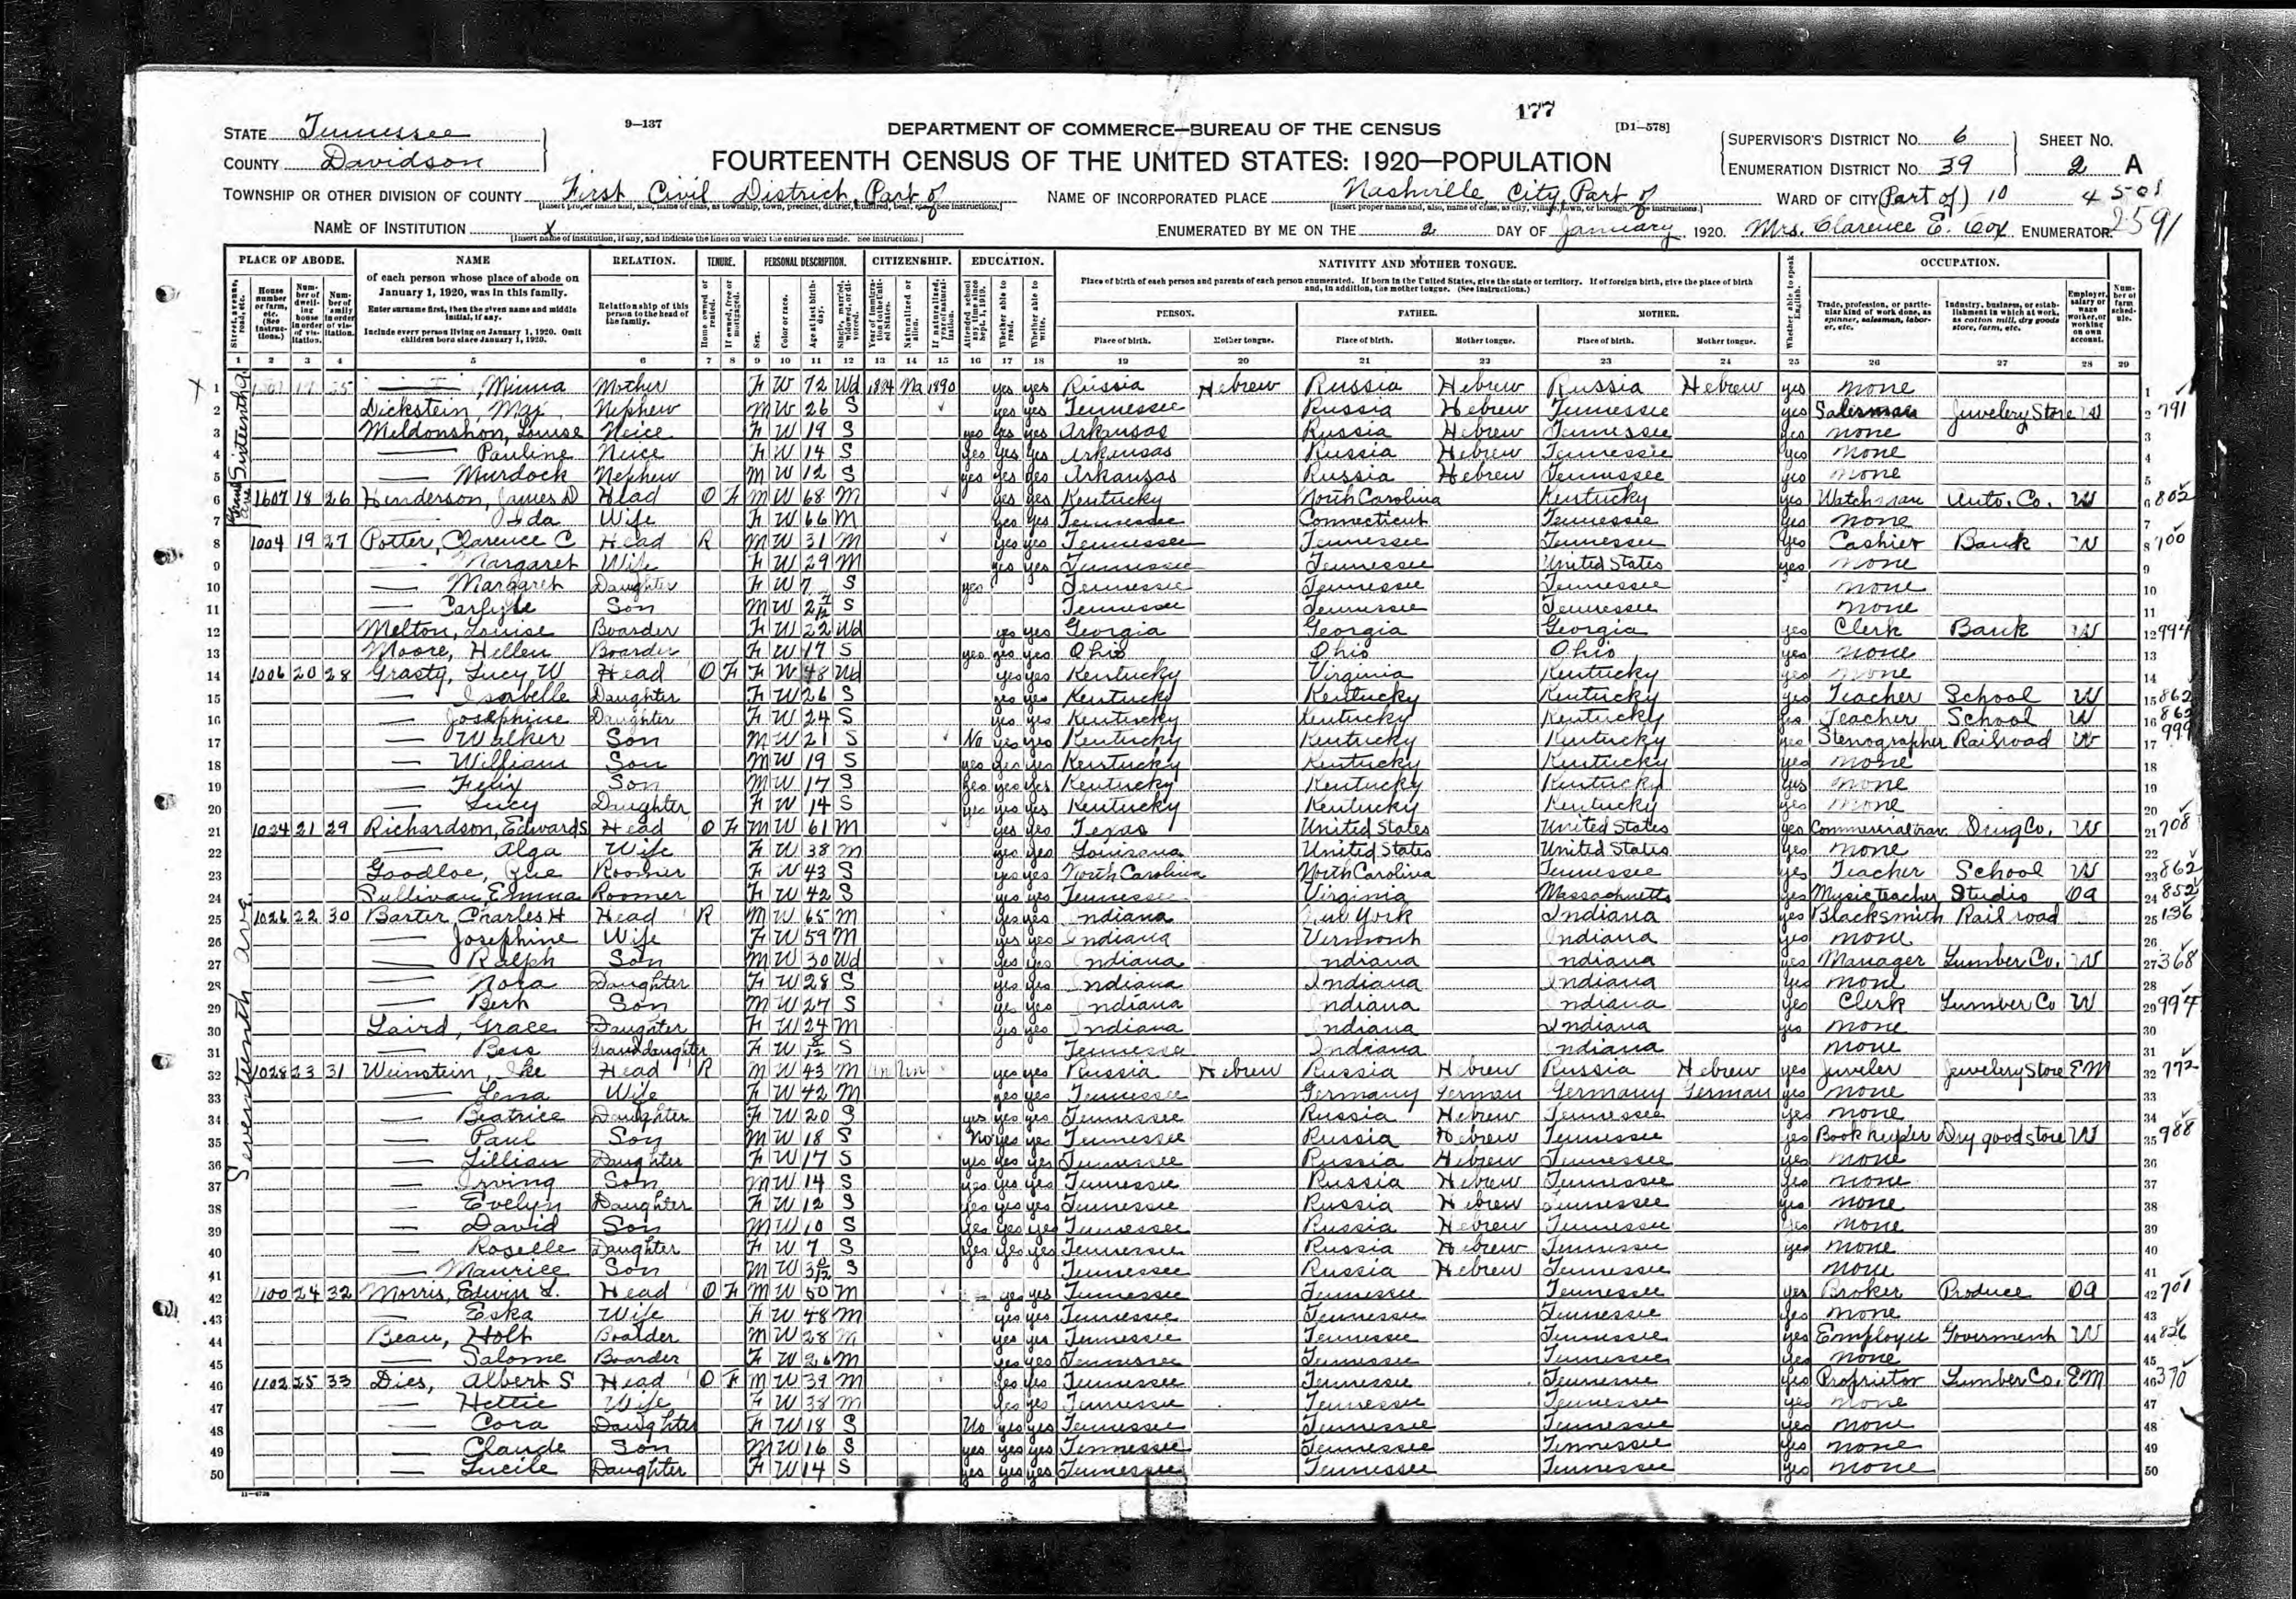 177
STATE Tennessee
9—137
DEPARTMENT OF COMMERCE—BUREAU OF THE CENSUS
[D1—578]
SUPERVISOR'S DISTRICT NO. 6 SHEET NO.
COUNTY Davidson
FOURTEENTH CENSUS OF THE UNITED STATES: 1920—POPULATION
ENUMERATION DISTRICT NO. 39 2 A
TOWNSHIP OR OTHER DIVISION OF COUNTY First Civil District, Part of NAME OF INCORPORATED PLACE Nashville City, Part of WARD OF CITY (Part of) 10
NAME OF INSTITUTION X ENUMERATED BY ME ON THE 2 DAY OF January, 1920. Mrs. Clarence E. Cox ENUMERATOR. 2591
PLACE OF ABODE. NAME RELATION. TENURE. PERSONAL DESCRIPTION. CITIZENSHIP. EDUCATION. NATIVITY AND MOTHER TONGUE. OCCUPATION.
of each person whose place of abode on January 1, 1920, was in this family.
Enter surname first, then the given name and middle initial, if any.
Include every person living on January 1, 1920. Omit children born since January 1, 1920.
Relationship of this person to the head of the family.
Place of birth of each person and parents of each person enumerated. If born in the United States, give the state or territory. If of foreign birth, give the place of birth and, in addition, the mother tongue. (See instructions.)
PERSON. FATHER. MOTHER.
Place of birth. Mother tongue. Place of birth. Mother tongue. Place of birth. Mother tongue.
1 2 3 4 5 6 7 8 9 10 11 12 13 14 15 16 17 18 19 20 21 22 23 24 25 26 27 28 29
1 — , Minna Mother F W 72 Wd 1884 Na 1890 yes yes Russia Hebrew Russia Hebrew Russia Hebrew yes none 1
2 Dickstein, Max Nephew M W 26 S yes yes Tennessee Russia Hebrew Tennessee yes Salesman Juvelery Store W 2 791
3 Meldonshon, Louise Neice F W 19 S yes yes yes Arkansas Russia Hebrew Tennessee yes none 3
4 — Pauline Neice F W 14 S yes yes yes Arkansas Russia Hebrew Tennessee yes none 4
5 — Murdock Nephew M W 12 S yes yes yes Arkansas Russia Hebrew Tennessee yes none 5
6 1607 18 26 Henderson, James D Head O F M W 68 M yes yes Kentucky North Carolina Kentucky yes Watchman Auto. Co. W 6 802
7 — Ida Wife F W 66 M yes yes Tennessee Connecticut Tennessee yes none 7
8 1004 19 27 Potter, Clarence C Head R M W 31 M yes yes Tennessee Tennessee Tennessee yes Cashier Bank W 8 700
9 — Margaret Wife F W 29 M yes yes Tennessee Tennessee United States yes none 9
10 — Margaret Daughter F W 7 S yes Tennessee Tennessee Tennessee none 10
11 — Carlyle Son M W 2 7/12 S Tennessee Tennessee Tennessee none 11
12 Melton, Louise Boarder F W 22 Wd yes yes Georgia Georgia Georgia yes Clerk Bank W 12 994
13 Moore, Hellen Boarder F W 17 S yes yes yes Ohio Ohio Ohio yes none 13
14 1006 20 28 Grasty, Lucy W Head O F F W 48 Wd yes yes Kentucky Virginia Kentucky yes none 14
15 — Isabelle Daughter F W 26 S yes yes Kentucky Kentucky Kentucky yes Teacher School W 15 862
16 — Josephine Daughter F W 24 S yes yes Kentucky Kentucky Kentucky yes Teacher School W 16 862
17 — Walker Son M W 21 S No yes yes Kentucky Kentucky Kentucky yes Stenographer Railroad W 17 999
18 — William Son M W 19 S yes yes yes Kentucky Kentucky Kentucky yes none 18
19 — Felix Son M W 17 S yes yes yes Kentucky Kentucky Kentucky yes none 19
20 — Lucy Daughter F W 14 S yes yes yes Kentucky Kentucky Kentucky yes none 20
21 1024 21 29 Richardson, Edward S Head O F M W 61 M yes yes Texas United States United States yes Commercial trav Drug Co. W 21 708
22 — Alga Wife F W 38 M yes yes Louisana United States United States yes none 22
23 Goodloe, Roomer F W 43 S yes yes North Carolina North Carolina Tennessee yes Teacher School W 23 862
24 Sullivan, Emma Roomer F W 42 S yes yes Tennessee Virginia Massachusetts yes Music teacher Studio OA 24 852
25 1026 22 30 Baxter, Charles H Head R M W 65 M yes yes Indiana New York Indiana yes Blacksmith Rail road 25 136
26 — Josephine Wife F W 59 M yes yes Indiana Vermont Indiana yes none 26
27 — Ralph Son M W 30 Wd yes yes Indiana Indiana Indiana yes Manager Lumber Co. W 27 368
28 — Nora Daughter F W 28 S yes yes Indiana Indiana Indiana yes none 28
29 — Bert Son M W 27 S yes yes Indiana Indiana Indiana yes Clerk Lumber Co W 29 994
30 Laird, Grace Daughter F W 24 M yes yes Indiana Indiana Indiana yes none 30
31 — Bess Granddaughter F W 8/12 S Tennessee Indiana Indiana none 31
32 1028 23 31 Weinstein, Ike Head R M W 43 M Un Un yes yes Russia Hebrew Russia Hebrew Russia Hebrew yes Juveler Juvelery Store EM 32 772
33 — Lena Wife F W 42 M yes yes Tennessee Germany German Germany German yes none 33
34 — Beatrice Daughter F W 20 S yes yes yes Tennessee Russia Hebrew Tennessee yes none 34
35 — Paul Son M W 18 S No yes yes Tennessee Russia Hebrew Tennessee yes Bookkeeper Dry good store W 35 988
36 — Lillian Daughter F W 17 S yes yes yes Tennessee Russia Hebrew Tennessee yes none 36
37 — Irving Son M W 14 S yes yes yes Tennessee Russia Hebrew Tennessee yes none 37
38 — Evelyn Daughter F W 12 S yes yes yes Tennessee Russia Hebrew Tennessee yes none 38
39 — David Son M W 10 S yes yes yes Tennessee Russia Hebrew Tennessee yes none 39
40 — Roselle Daughter F W 7 S yes yes yes Tennessee Russia Hebrew Tennessee yes none 40
41 — Maurice Son M W S Tennessee Russia Hebrew Tennessee none 41
42 1100 24 32 Morris, Edwin L. Head O F M W 50 M yes yes Tennessee Tennessee Tennessee yes Broker Produce OA 42 701
43 — Eska Wife F W 48 M yes yes Tennessee Tennessee Tennessee yes none 43
44 Bean, Holt Boarder M W 28 M yes yes Tennessee Tennessee Tennessee yes Employee Goverment W 44 826
45 — Salome Boarder F W 26 M yes yes Tennessee Tennessee Tennessee yes none 45
46 1102 25 33 Dies, Albert S Head O F M W 39 M yes yes Tennessee Tennessee Tennessee yes Proprietor Lumber Co. EM 46 370
47 — Hettie Wife F W 38 M yes yes Tennessee Tennessee Tennessee yes none 47
48 — Cora Daughter F W 18 S No yes yes Tennessee Tennessee Tennessee yes none 48
49 — Claude Son M W 16 S yes yes yes Tennessee Tennessee Tennessee yes none 49
50 — Lucile Daughter F W 14 S yes yes yes Tennessee Tennessee Tennessee yes none 50
Seventeenth Ave.